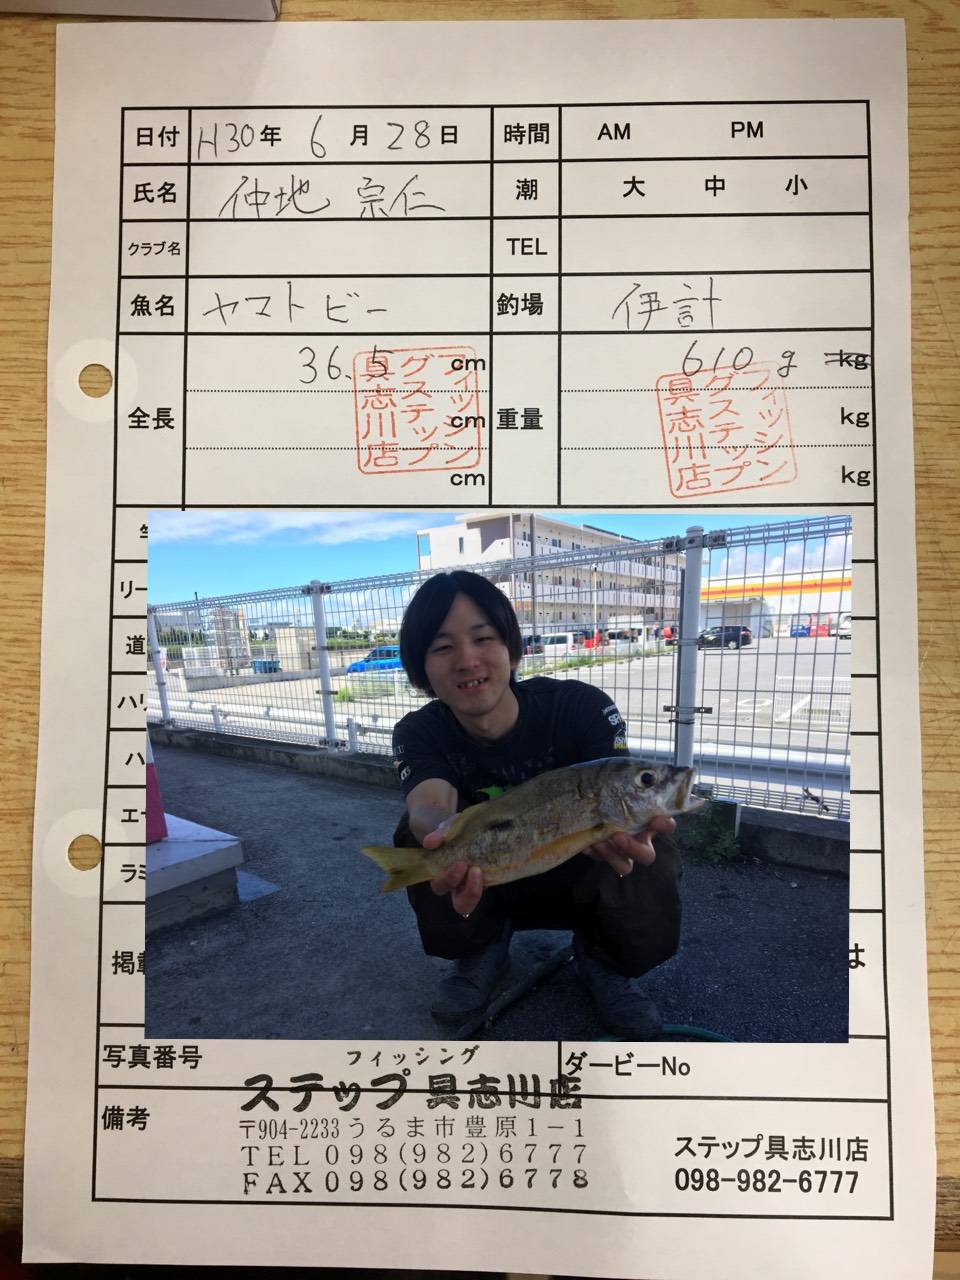 日付 H30年 6月 28日 時間 AM PM
氏名 仲地 宗仁 潮 大 中 小
クラブ名 TEL
魚名 ヤマトビー 釣場 伊計
全長 36.5 cm 重量 610 g kg
cm kg
cm kg
フィッシングステップ具志川店
フィッシングステップ具志川店
リー
道
ハリ
ハ
エ
ラミ
掲載 は
写真番号 ダービーNo
フィッシング
ステップ 具志川店
〒904-2233 うるま市豊原1-1
TEL 098(982)6777
FAX 098(982)6778
備考
ステップ具志川店
098-982-6777